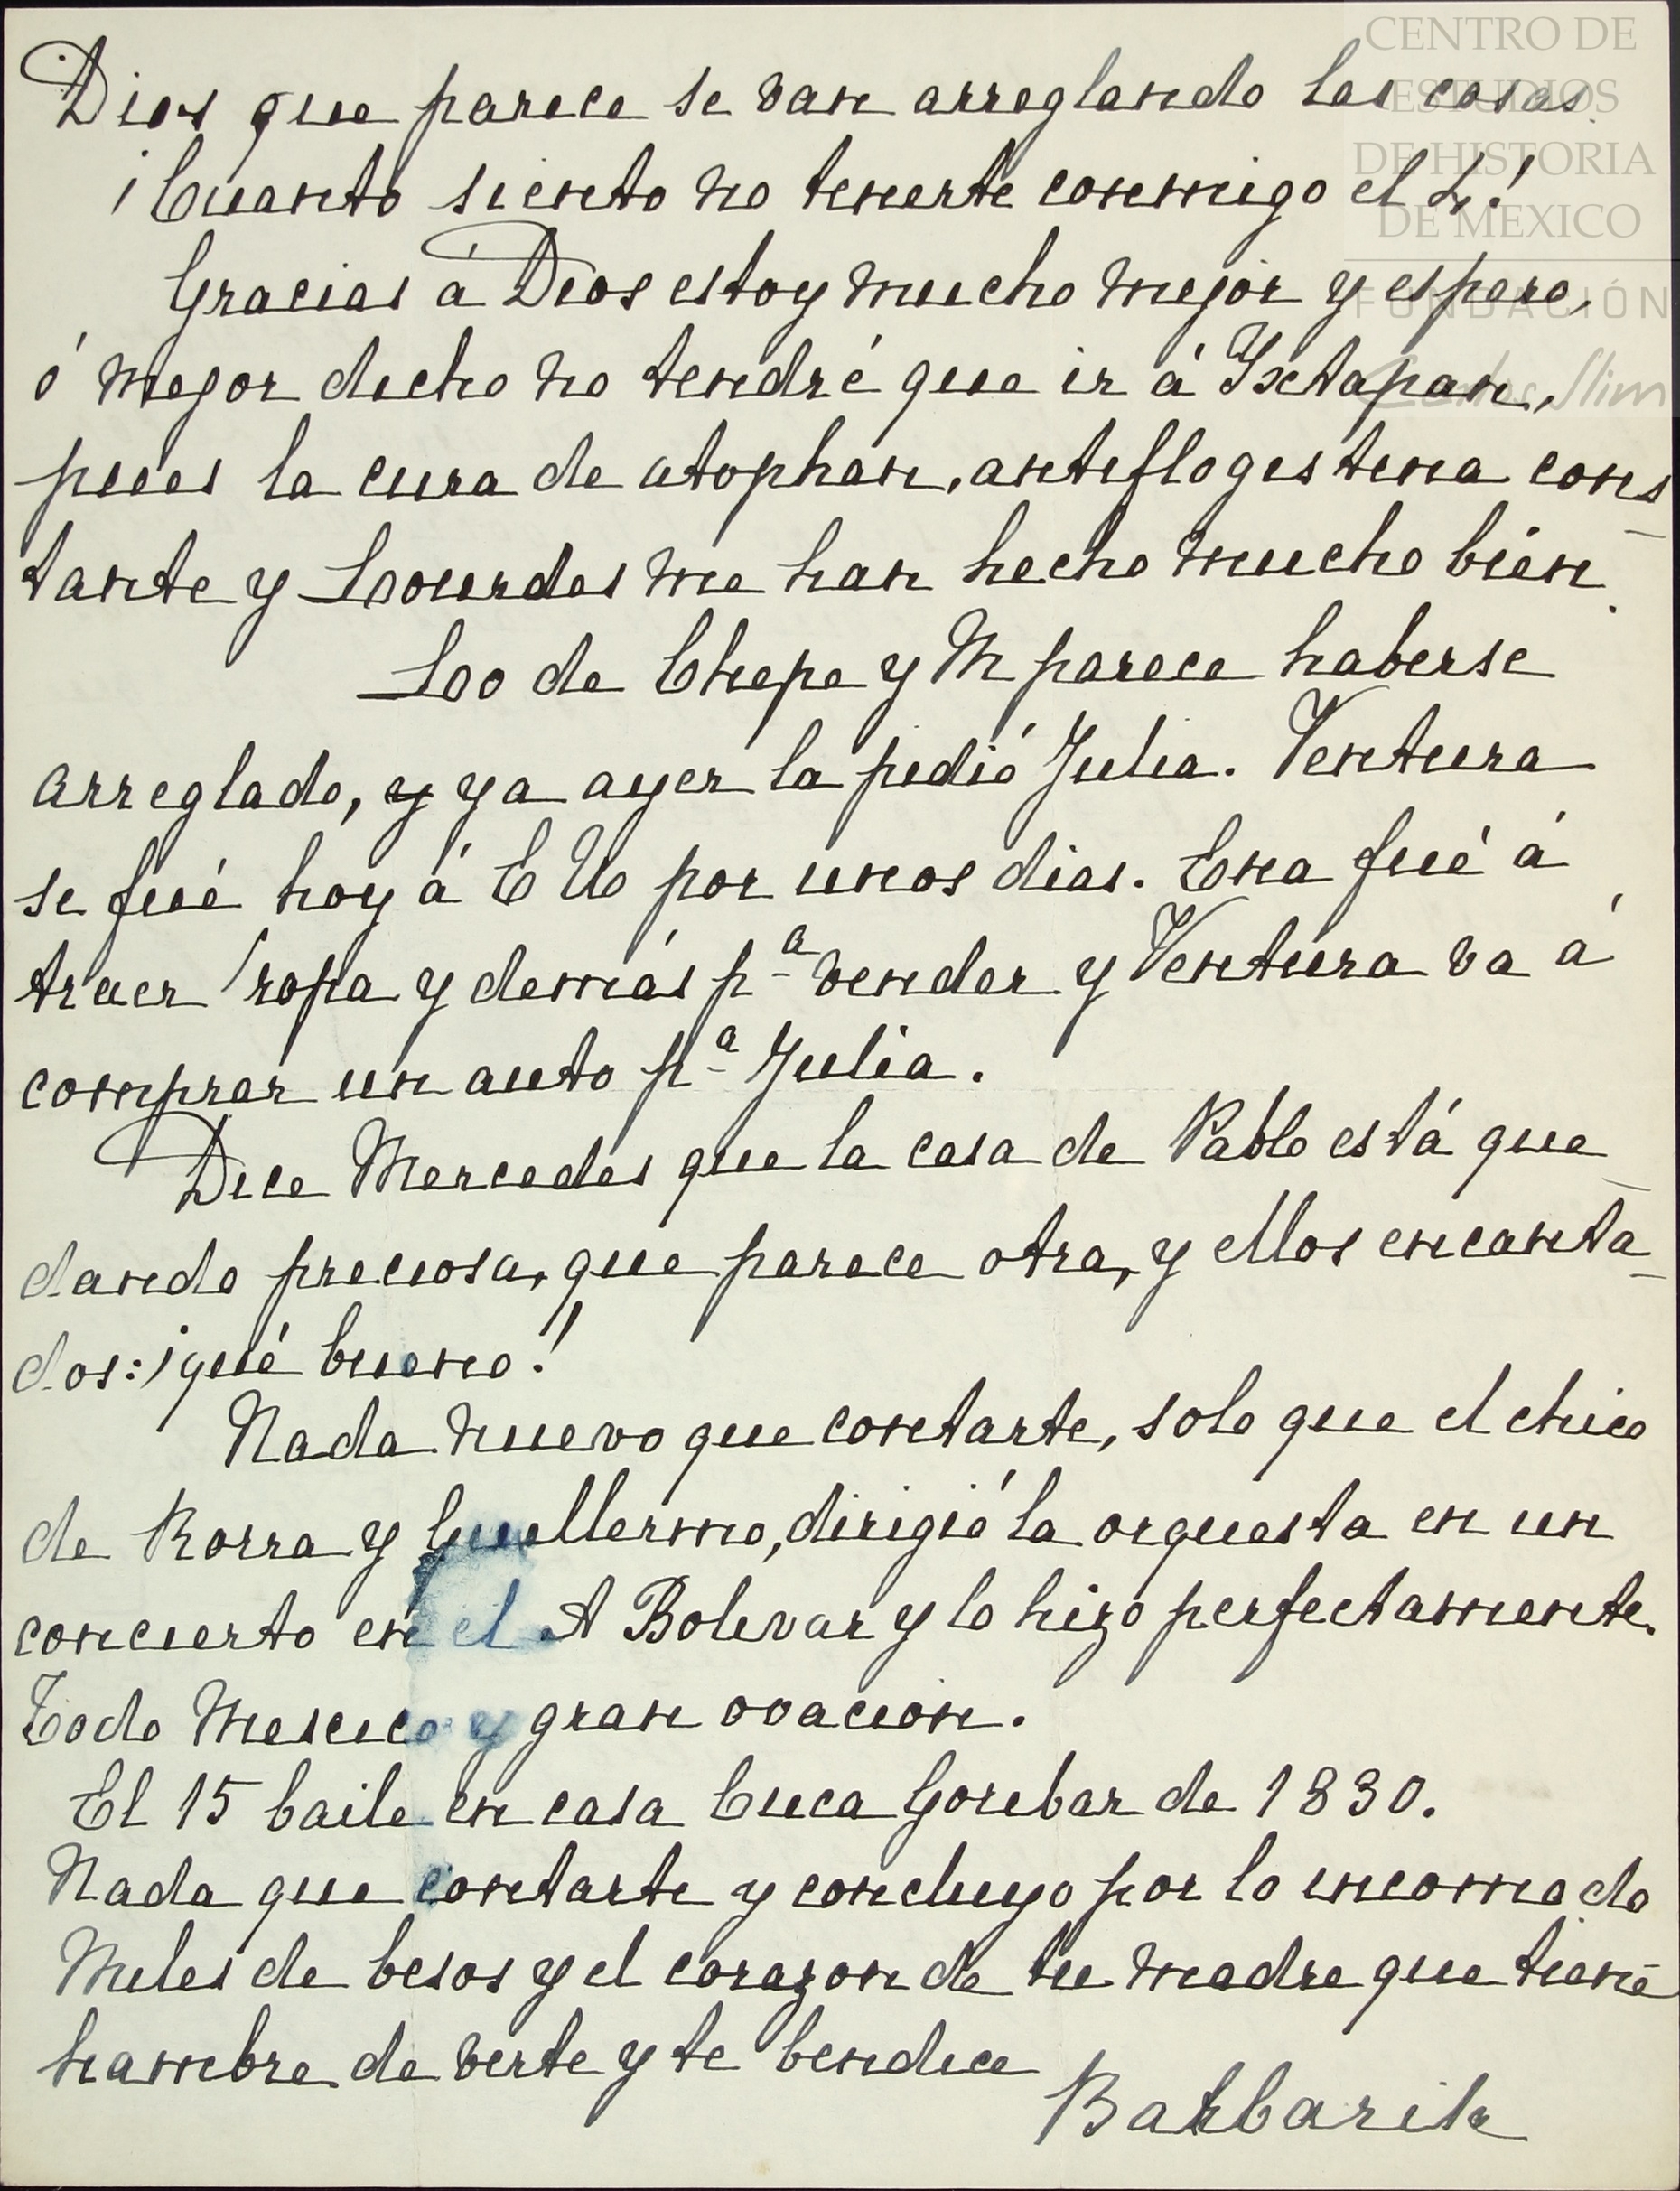 CENTRO DE
ESTUDIOS
DE HISTORIA
DE MEXICO
FUNDACIÓN
Carlos Slim
Dios que parece se van arreglando las cosas.
¡Cuanto siento no tenerte conmigo el 4!
Gracias á Dios estoy mucho mejor y espero,
ó mejor dicho no tendré que ir á Ixtapan,
pues la cura de atophan, antiflogistina cons-
tante y Lourdes me han hecho mucho bién.
Lo de Chepe y M parece haberse
arreglado, y ya ayer la pidió Julia. Ventura
se fué hoy á E U por unos dias. Ena fué á
traer ropa y demás pª vender y Ventura va á
comprar un auto pª Julia.
Dice Mercedes que la casa de Pablo está que-
dando preciosa, que parece otra, y ellos encanta-
dos: ¡qué bueno!
Nada nuevo que contarte, solo que el chico
de Rorra y Guillermo, dirigió la orquesta en un
concierto en el A Bolivar y lo hizo perfectamente.
Todo Mexico y gran ovación.
El 15 baile en casa Cuca Goribar de 1830.
Nada que contarte y concluyo por lo incomodo
Miles de besos y el corazon de tu madre que tiene
hambre de verte y te bendice